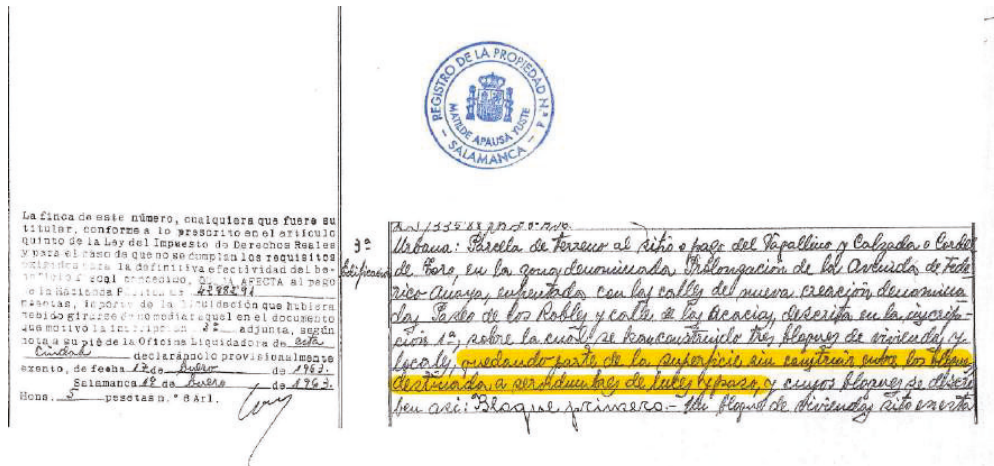 REGISTRO DE LA PROPIEDAD N.º 4
MATILDE APAUSA YUSTE
- SALAMANCA -
La finca de este número, cualquiera que fuere su
titular, conforme a lo prescrito en el artículo
quinto de la Ley del Impuesto de Derechos Reales
y para el caso de que no se cumplan los requisitos
exigidos para la definitiva efectividad del be-
neficio fiscal concedido, QUEDA AFECTA al pago
a la Hacienda de
pesetas, importe de la liquidación que hubiera
debido girarse de no mediar aquel en el documento
que motivó la inscripción 3ª adjunta, según
nota a su pié de la Oficina Liquidadora de esta
Ciudad declarándolo provisionalmente
exento, de fecha 17 de Enero de 1963.
Salamanca 19 de Enero de 1963.
Hons. 5 pesetas n.º 8 Arl.
3ª
Edificación
Urbana: Parcela de terreno al sitio o pago del Tapallino y Calzada o Cordel
de Toro, en la zona denominada Prolongación de la Avenida de Fede-
rico Anaya, enfrentada con las calles de nueva creación denomina-
das Paseo de los Robles y calle de las Acacias, descrita en la inscrip-
ción 1ª, sobre la cual se han construido tres bloques de viviendas y
locales, quedando parte de la superficie sin construir entre los bloques
destinada a servidumbres de luces y paso, y cuyos bloques se descri-
ben así: Bloque primero.- Un bloque de viviendas sito en esta